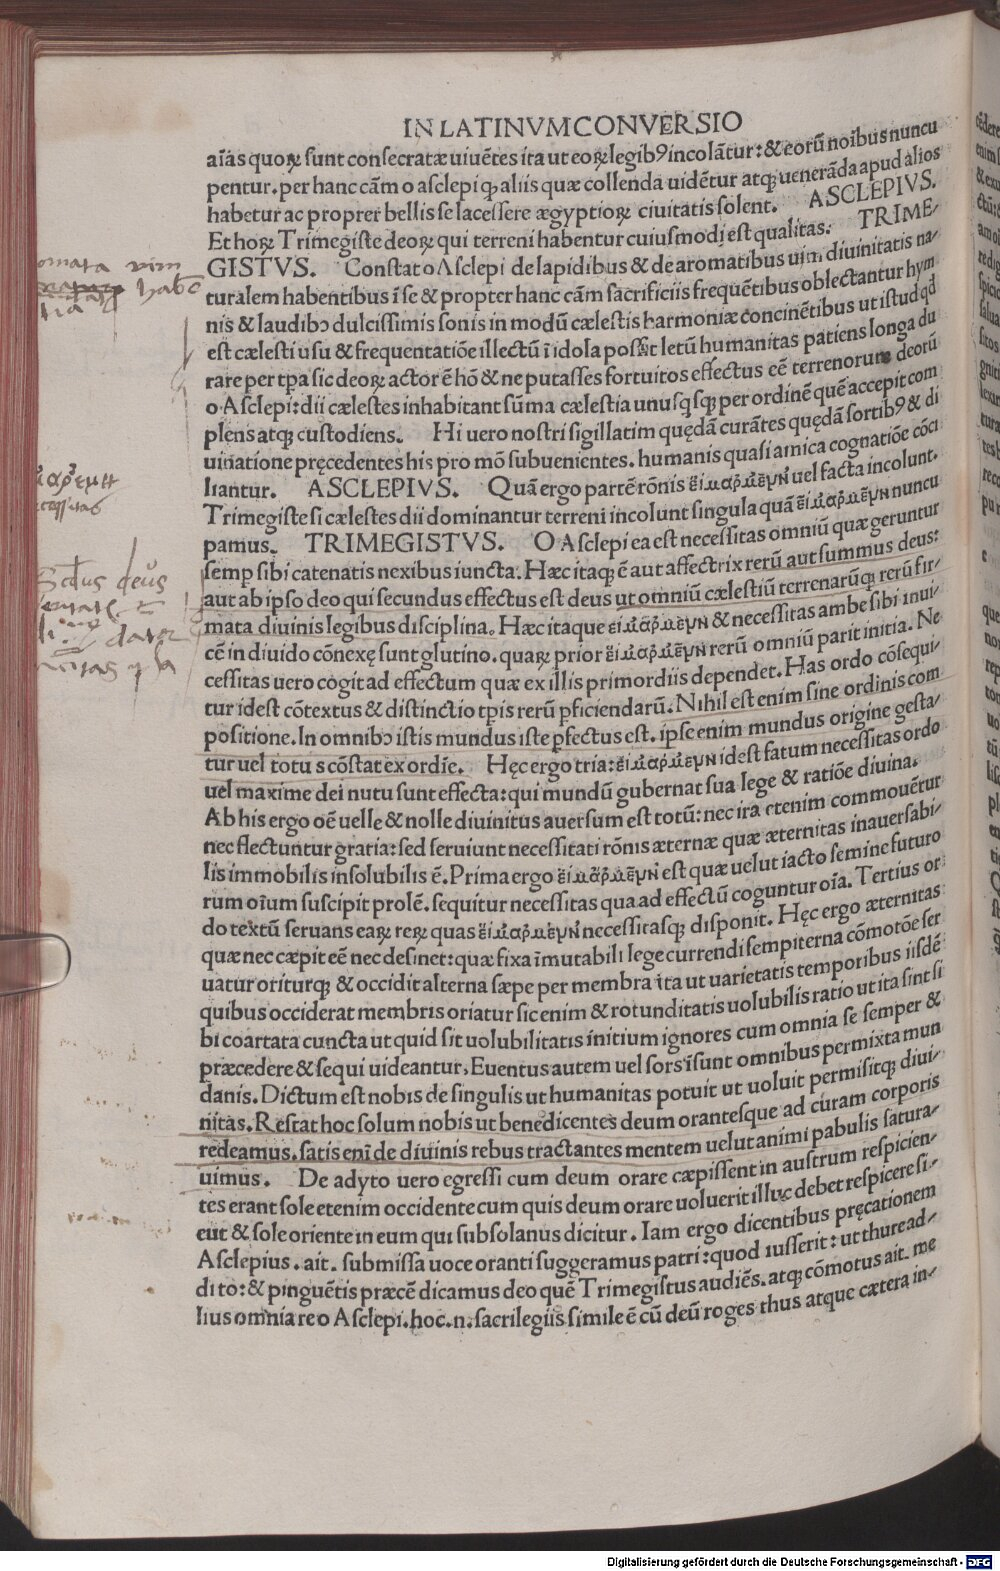 IN LATINVM CONVERSIO
aīas quoꝝ sunt consecratæ uiuētes ita ut eoꝝ legibꝰ incolātur: & eorū noībus nuncu
pentur. per hanc cām o asclepi ꝙ aliis quæ collenda uidētur atqꝫ uenerāda apud alios
habetur ac proprer bellis se lacessere ægyptioꝝ ciuitatis solent. ASCLEPIVS.
Et hoꝝ Trimegiste deoꝝ qui terreni habentur cuiusmodi est qualitas. TRIME-
GISTVS. Constat o Asclepi de lapidibus & de aromatibus uim diuinitatis na-
turalem habentibus ī se & propter hanc cām sacrificiis frequētibus oblectantur hym
nis & laudibꝰ dulcissimis sonis in modū cælestis harmoniæ concinētibus ut istud qd
est cælesti usu & frequentatiōe illectū ī idola possit letū humanitas patiens longa du
rare per tpa sic deoꝝ actor ē hō & ne putasses fortuitos effectus eē terrenorum deorū
o Asclepi: dii cælestes inhabitant sūma cælestia unusqsqꝫ per ordinē quē accepit com
plens atqꝫ custodiens. Hi uero nostri sigillatim quędā curātes quędā sortibꝰ & di
uinatione pręcedentes his pro mō subuenientes. humanis quasi amica cognatiōe cōci
liantur. ASCLEPIVS. Quā ergo partē rōnis εἱμαρμένη uel facta incolunt.
Trimegiste si cælestes dii dominantur terreni incolunt singula quā εἱμαρμένην nuncu
pamus. TRIMEGISTVS. O Asclepi ea est necessitas omniū quæ geruntur
semp sibi catenatis nexibus iuncta. Hæc itaqꝫ ē aut affectrix rerū aut summus deus:
aut ab ipso deo qui secundus effectus est deus ut omniū cælestiū terrenarūqꝫ rerū fir-
mata diuinis legibus disciplina. Hæc itaque εἱμαρμένη & necessitas ambe sibi inui-
cē in diuido cōnexę sunt glutino. quaꝝ prior εἱμαρμένη rerū omniū parit initia. Ne
cessitas uero cogit ad effectum quæ ex illis primordiis dependet. Has ordo cōsequi-
tur idest cōtextus & distinctio tpis rerū pficiendarū. Nihil est enim sine ordinis com
positione. In omnibꝰ istis mundus iste pfectus est. ipse enim mundus origine gesta-
tur uel totus cōstat ex ordīe. Hęc ergo tria: εἱμαρμένη idest fatum necessitas ordo
uel maxime dei nutu sunt effecta: qui mundū gubernat sua lege & ratiōe diuina.
Ab his ergo oē uelle & nolle diuinitus auersum est totū: nec ira etenim commouētur
nec flectuntur gratia: sed seruiunt necessitati rōnis æternæ quæ æternitas inauersabi-
lis immobilis insolubilis ē. Prima ergo εἱμαρμένη est quæ uelut iacto semine futuro
rum oīum suscipit prolē. sequitur necessitas qua ad effectū coguntur oīa. Tertius or
do textū seruans eaꝝ reꝝ quas εἱμαρμένη necessitasqꝫ disponit. Hęc ergo æternitas
quæ nec cæpit eē nec desinet: quæ fixa īmutabili lege currendi sempiterna cōmotōe ser
uatur oriturqꝫ & occidit alterna sæpe per membra īta ut uarietatis temporibus iisdē
quibus occiderat membris oriatur sic enim & rotunditatis uolubilis ratio ut ita sint si
bi coartata cuncta ut quid sit uolubilitatis initium ignores cum omnia se semper &
præcedere & sequi uideantur. Euentus autem uel sors īsunt omnibus permixta mun
danis. Dictum est nobis de singulis ut humanitas potuit ut uoluit permisitqꝫ diui-
nitas. Restat hoc solum nobis ut benedicentes deum orantesque ad curam corporis
redeamus. satis enī de diuinis rebus tractantes mentem uelut animi pabulis satura-
uimus. De adyto uero egressi cum deum orare cæpissent in austrum respicien-
tes erant sole etenim occidente cum quis deum orare uoluerit illuc debet respicere si-
cut & sole oriente in eum qui subsolanus dicitur. Iam ergo dicentibus pręcationem
Asclepius. ait. submissa uoce oranti suggeramus patri: quod iusserit: ut thure ad-
dito: & pinguētis præcē dicamus deo quē Trimegistus audiēs. atqꝫ cōmotus ait. me
lius omnia reo Asclepi. hoc. n. sacrilegiis simile ē cū deū roges thus atque cætera in-
omata vim
habē
Scdus deus
Digitalisierung gefördert durch die Deutsche Forschungsgemeinschaft - DFG